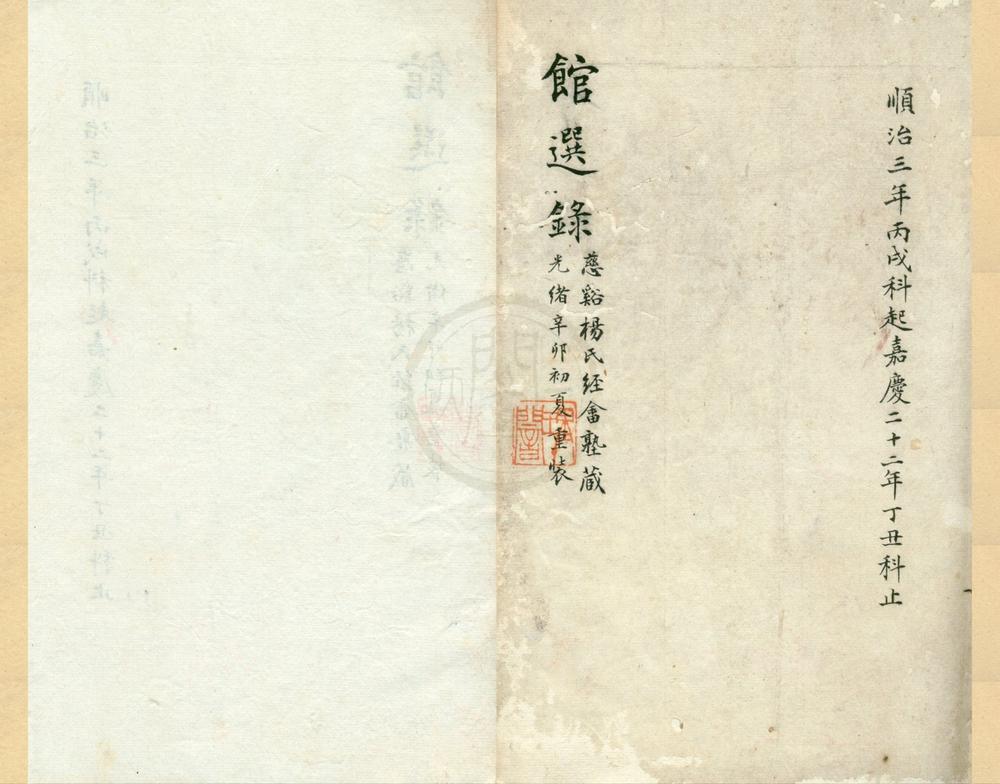 順治三年丙戌科起嘉慶二十二年丁丑科止
館選錄
慈谿楊氏經畬塾藏
光緒辛卯初夏重裝